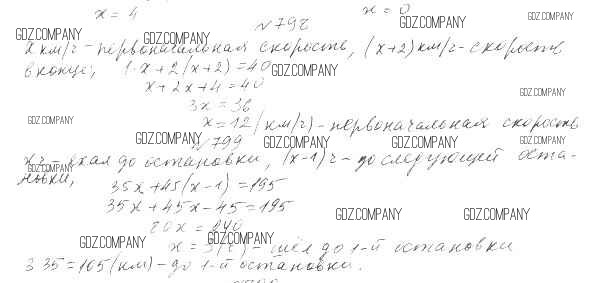 x = 4 x = 0
GDZ.COMPANY
№ 798
GDZ.COMPANY GDZ.COMPANY
x км/ч - первоначальная скорость, (x+2) км/ч - скорость
в конце; 1·x + 2(x+2) = 40
GDZ.COMPANY
x + 2x + 4 = 40
GDZ.COMPANY
3x = 36
x = 12 (км/ч) - первоначальная скорость
GDZ.COMPANY
№ 799
GDZ.COMPANY GDZ.COMPANY GDZ.COMPANY GDZ.COMPANY
x ч - ехал до остановки, (x-1) ч - до следующей оста-
новки,
GDZ.COMPANY
35x + 45(x-1) = 195
35x + 45x - 45 = 195
GDZ.COMPANY GDZ.COMPANY
80x = 240
GDZ.COMPANY GDZ.COMPANY
x = 3 (ч) - шёл до 1-й остановки
3·35 = 105 (км) - до 1-й остановки.